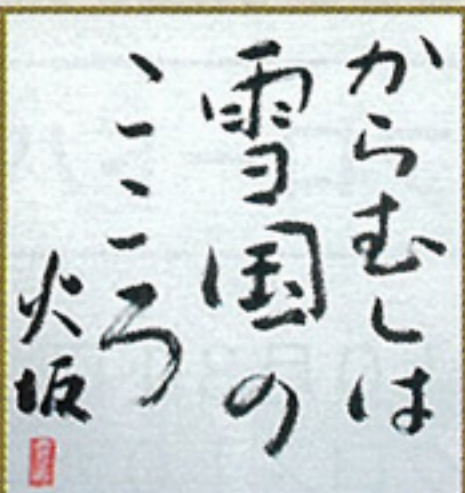 からむしは
雪国の
こころ
火坂